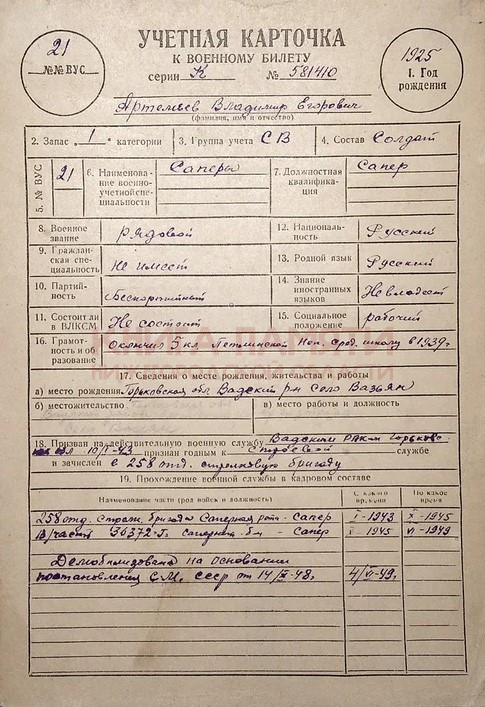 21
№№ ВУС
УЧЕТНАЯ КАРТОЧКА
К ВОЕННОМУ БИЛЕТУ
серии К № 581410
1925
1. Год
рождения
Артемьев Владимир Егорович
(фамилия, имя и отчество)
2. Запас „1“ категории
3. Группа учета СВ
4. Состав Солдат
5. № ВУС
21
6. Наименова-
ние военно-
учетной спе-
циальности
Саперы
7. Должностная
квалифика-
ция
Сапер
8. Военное
звание
рядовой
12. Националь-
ность
Русский
9. Граждан-
ская спе-
циальность
Не имеет
13. Родной язык
Русский
10. Партий-
ность
Беспартийный
14. Знание
иностранных
языков
Не владеет
11. Состоит ли
в ВЛКСМ
Не состоит
15. Социальное
положение
рабочий
16. Грамот-
ность и об
разование
Окончил 5 кл. Неп. сред. школу в 1939г
17. Сведения о месте рождения, жительства и работы
а) место рождения Горьковской обл Вадский р-н Село Вазьян
б) местожительство
в) место работы и должность
18. Призван на действительную военную службу Вадским РВК Горьковс-
кой обл 10/I-43 признан годным к строевой службе
и зачислен в 258 отд. стрелковую бригаду
19. Прохождение военной службы в кадровом составе
Наименование части (род войск и должность)
С какого
времени
По какое
время
258 отд. стрелк. бригады Саперная рота - Сапер
I-1943
X-1945
В/часть саперный б-н - Сапер
X-1945
VI-1949
Демобилизован на основании
постановления С.М. СССР от
4/VI-49г